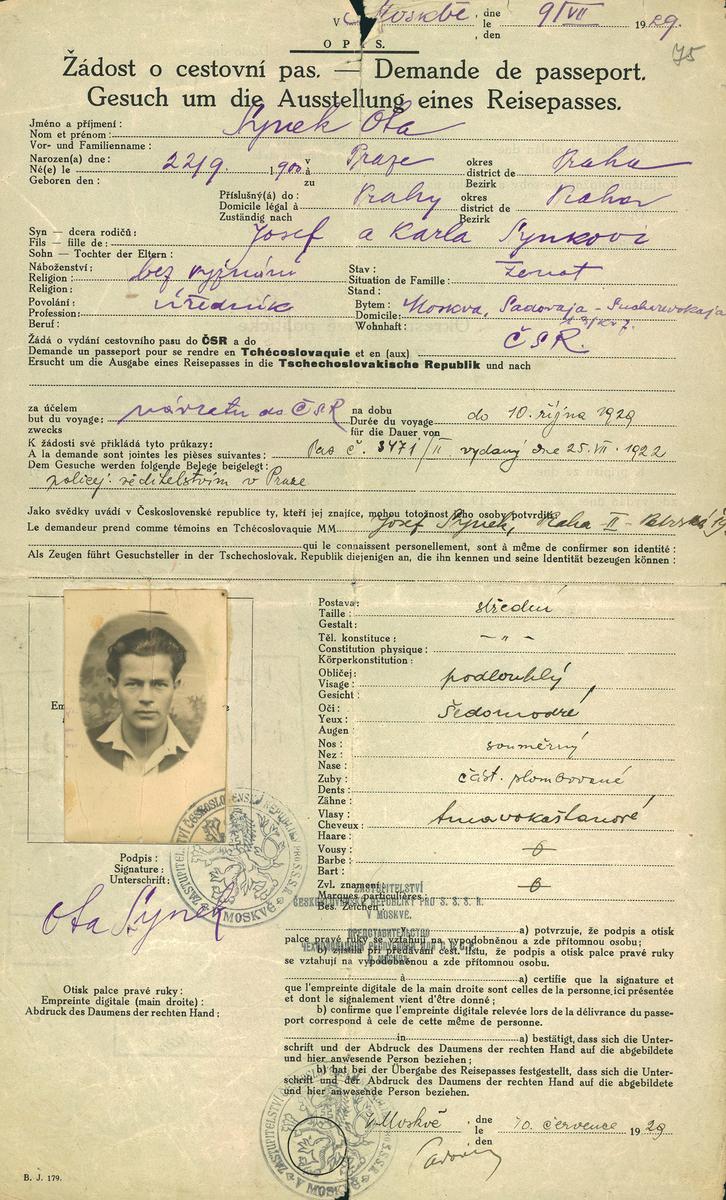 V Moskvě, dne 9/VII 1929.
le
, den
75
OPIS.
Žádost o cestovní pas. — Demande de passeport.
Gesuch um die Ausstellung eines Reisepasses.
Jméno a příjmení :
Nom et prénom : Synek Ota
Vor- und Familienname :
Narozen(a) dne : v okres
Né(e) le 22/9. 1900 à Praze district de Praha
Geboren den : zu Bezirk
Příslušný(á) do : okres
Domicile légal à Prahy district de Praha
Zuständig nach Bezirk
Syn — dcera rodičů :
Fils — fille de : Josef a Karla Synkovi
Sohn — Tochter der Eltern :
Náboženství : bez vyznání Stav : ženat
Religion : Situation de Famille :
Religion : Stand :
Povolání : úředník Bytem : Moskva, Sadovaja - Sucharevskaja
Profession : Domicile :
Beruf : Wohnhaft :
Žádá o vydání cestovního pasu do ČSR a do ČSR.
Demande un passeport pour se rendre en Tchécoslovaquie et en (aux)
Ersucht um die Ausgabe eines Reisepasses in die Tschechoslovakische Republik und nach
za účelem na dobu
but du voyage : návratu do ČSR Durée du voyage do 10. října 1929
zwecks für die Dauer von
K žádosti své přikládá tyto průkazy :
A la demande sont jointes les pièses suivantes : Pas č. 3471/II vydaný dne 25. VII. 1922
Dem Gesuche werden folgende Belege beigelegt :
policej. ředitelstvím v Praze
Jako svědky uvádí v Československé republice ty, kteří jej znajíce, mohou totožnost jeho osoby potvrditi:
Le demandeur prend comme témoins en Tchécoslovaquie MM. Josef Synek, Praha II - Petrská
qui le connaissent personellement, sont à même de confirmer son identité :
Als Zeugen führt Gesuchsteller in der Tschechoslovak. Republik diejenigen an, die ihn kennen und seine Identität bezeugen können :
Postava :
Taille : střední
Gestalt :
Těl. konstituce :
Constitution physique : — „ —
Körperkonstitution :
Obličej :
Visage : podlouhlý
Gesicht :
Oči :
Yeux : šedomodré
Augen :
Nos :
Nez : souměrný
Nase :
Zuby :
Dents : část. plombované
Zähne :
Vlasy :
Cheveux : tmavokaštanové
Haare :
Vousy
Barbe :
Bart :
Zvl. znamení
Marques particulières :
Bes. Zeichen
ZASTUPITELSTVÍ
ČESKOSLOVENSKÉ REPUBLIKY PRO S. S. S. R.
V MOSKVĚ.
ПРЕДСТАВИТЕЛЬСТВО
В МОСКВЕ
ZASTUPITELSTVÍ ČESKOSLOVENSKÉ REPUBLIKY PRO S.S.S.R. V MOSKVĚ
Podpis :
Signature :
Unterschrift :
Ota Synek
Otisk palce pravé ruky :
Empreinte digitale (main droite) :
Abdruck des Daumens der rechten Hand :
v a) potvrzuje, že podpis a otisk
palce pravé ruky se vztahují na vypodobněnou a zde přítomnou osobu;
b) zjistila při předávání cest. listu, že podpis a otisk palce pravé ruky
se vztahují na vypodobněnou a zde přítomnou osobu.
à a) certifie que la signature et
que l'empreinte digitale de la main droite sont celles de la personne ici présentée
et dont le signalement vient d'être donné ;
b) confirme que l'empreinte digitale relevée lors de la délivrance du passe-
port correspond à cele de cette même de personne.
in a) bestätigt, dass sich die Unter-
schrift und der Abdruck des Daumens der rechten Hand auf die abgebildete
und hier anwesende Person beziehen ;
b) hat bei der Übergabe des Reisepasses festgestellt, dass sich die Unter-
schrift und der Abdruck des Daumens der rechten Hand auf die abgebildete
und hier anwesende Person beziehen.
ZASTUPITELSTVÍ ČESKOSLOVENSKÉ REPUBLIKY PRO S.S.S.R. V MOSKVĚ
v Moskvě dne 10. července 1929
le
den
B. J. 179.